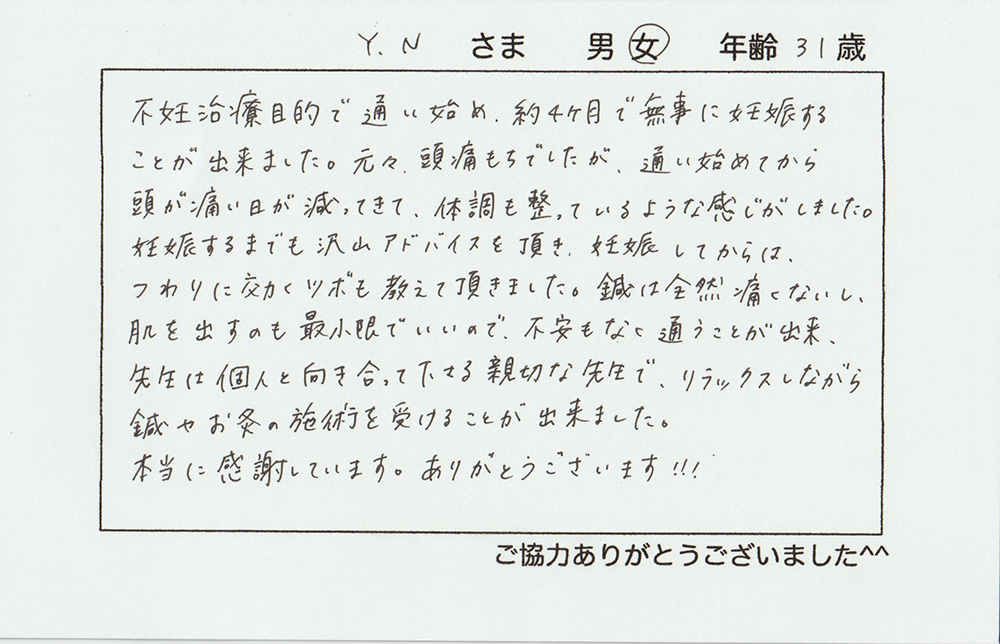 Y.N さま 男 女 年齢 31 歳
不妊治療目的で通い始め、約4ヶ月で無事に妊娠する
ことが出来ました。元々、頭痛もちでしたが、通い始めてから
頭が痛い日が減ってきて、体調も整っているような感じがしました。
妊娠するまでも沢山アドバイスを頂き、妊娠してからは、
つわりに効くツボも教えて頂きました。鍼は全然痛くないし、
肌を出すのも最小限でいいので、不安もなく通うことが出来、
先生は個人と向き合って下さる親切な先生で、リラックスしながら
鍼やお灸の施術を受けることが出来ました。
本当に感謝しています。ありがとうございます!!!
ご協力ありがとうございました^^